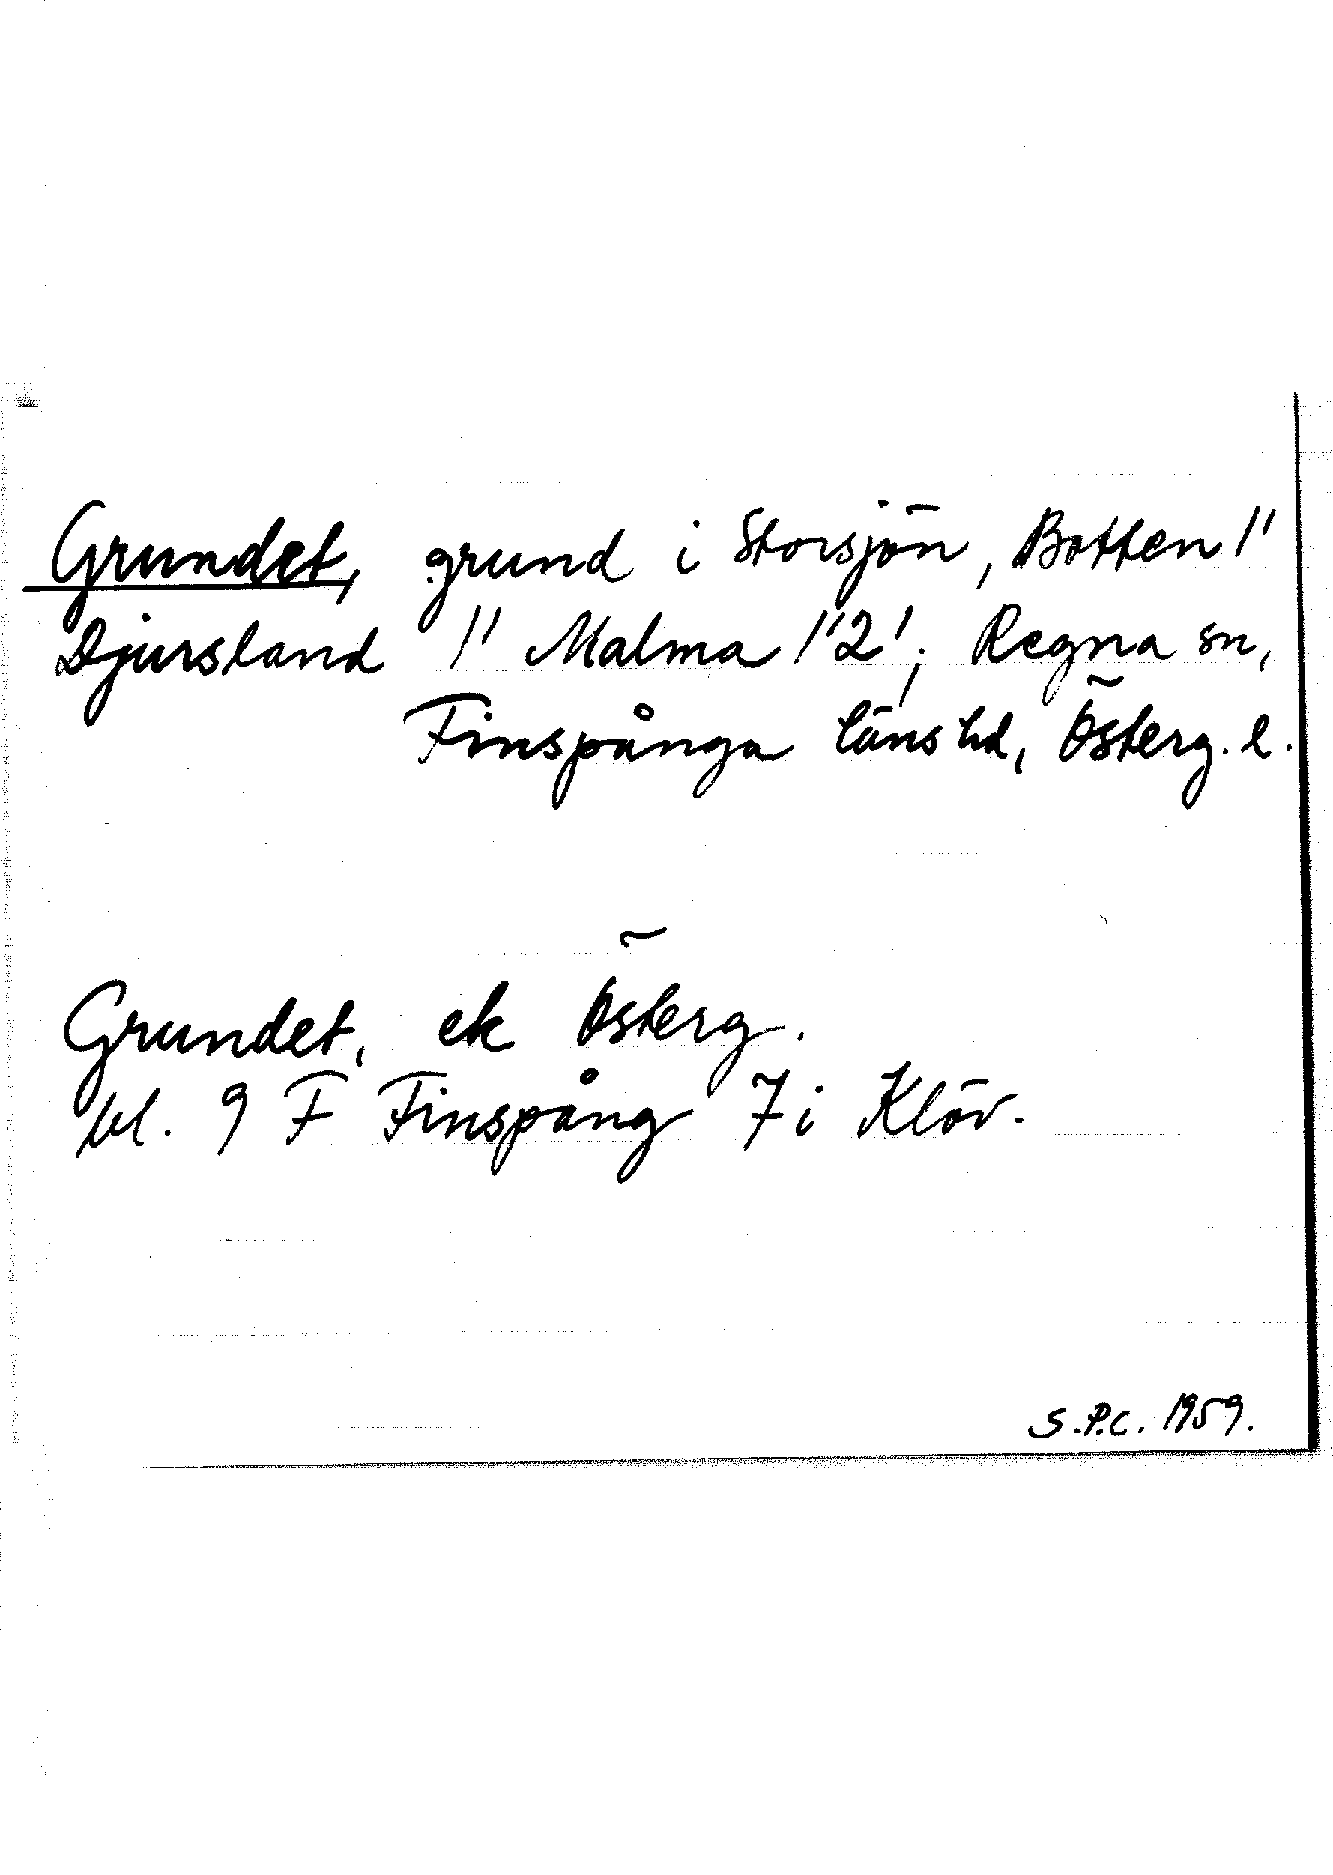 Grundet, grund i Storsjön, Botten 1¹
Djursland 1¹ Malma 1¹2¹; Regna sn,
Finspånga läns hd, Österg. l.
Grundet, ek Österg.
bl. 9 F Finspång 7 i Klöv.
S.P.C. 1959.